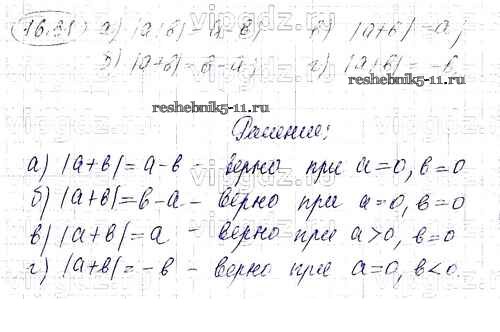 16.31 а) |а+в|=а-в; в) |а+в|=а;
б) |а+в|=в-а; г) |а+в|=-в.
reshebnik5-11.ru
reshebnik5-11.ru
Решение:
а) |а+в|=а-в - верно при а=0, в=0
б) |а+в|=в-а - верно при а=0, в=0
в) |а+в|=а - верно при а>0, в=0
г) |а+в|=-в - верно при а=0, в<0.